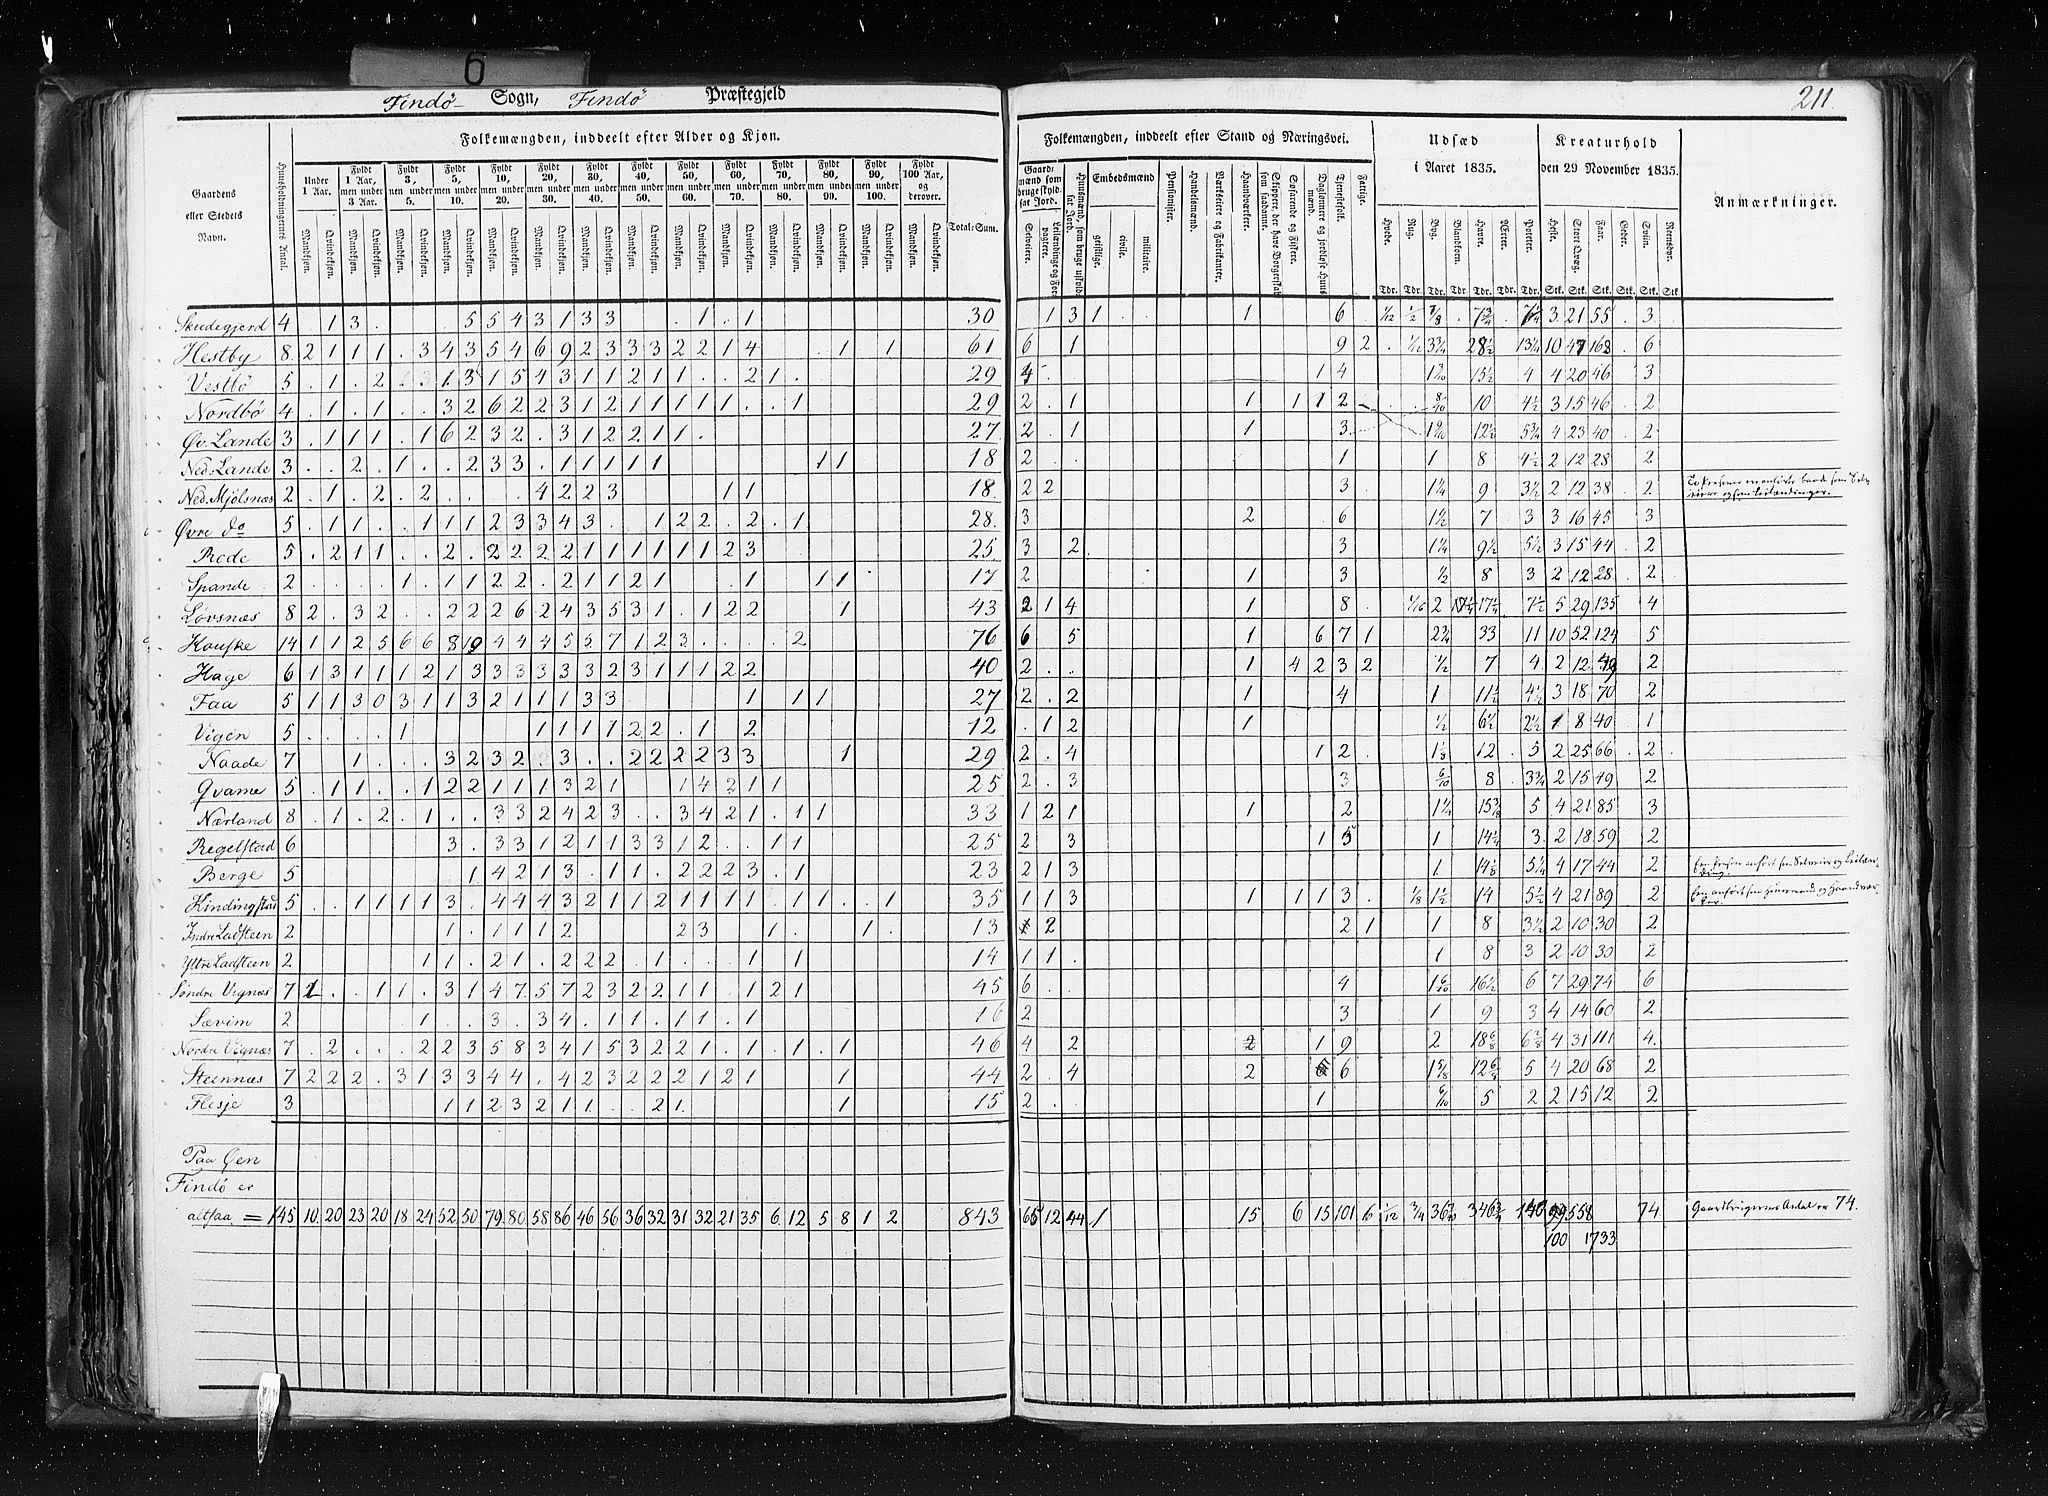 6
211.
Findö Sogn, Findö Præstegjeld
Folkemængden, inddeelt efter Alder og Kjøn.
Gaardens eller Stedets Navn.
Huusholdningernes Antal.
Under 1 Aar.
Fyldt 1 Aar, men under 3 Aar.
Fyldt 3, men under 5.
Fyldt 5, men under 10.
Fyldt 10, men under 20.
Fyldt 20, men under 30.
Fyldt 30, men under 40.
Fyldt 40, men under 50.
Fyldt 50, men under 60.
Fyldt 60, men under 70.
Fyldt 70, men under 80.
Fyldt 80, men under 90.
Fyldt 90, men under 100.
Fyldt 100 Aar, og derover.
Mandkjøn. Qvindekjøn.
Total-Sum.
Folkemængden, inddeelt efter Stand og Næringsvei.
Gaardmænd som bruge skyldsat Jord.
Selveiere.
Leilændinge og Forpagtere.
Huusmænd, som bruge uskyldsat Jord.
Embedsmænd
geistlige. civile. militaire.
Pensionister.
Handelsmænd.
Værkeiere og Fabrikanter.
Haandværkere.
Skippere, der have Borgerskab som saadanne.
Søfarende og Fiskere.
Daglønnere og jordløse Huusmænd.
Tjenestefolk.
Fattige.
Udsæd i Aaret 1835.
Hvede. Rug. Byg. Blandkorn. Havre. Ærter. Poteter.
Tdr. Tdr. Tdr. Tdr. Tdr. Tdr. Tdr.
Kreaturhold den 29 November 1835.
Heste. Stort Qvæg. Faar. Geder. Sviin. Rensdyr.
Stk. Stk. Stk. Stk. Stk. Stk.
Anmærkninger.
Skudegjerd 4 . 1 3 . 5 5 4 3 1 3 3 . 1 . 1 30 . 1 3 1 1 6 1/12 1/2 7/8 . 7 3/4 . 7 1/4 3 21 55 . 3
Hestby 8 2 1 1 1 . 3 4 3 5 4 6 9 2 3 3 3 2 2 1 4 . 1 . 1 61 6 . 1 9 2 . 1/12 3 3/4 28 1/2 13 1/4 10 47 168 . 6
Vestbö 5 . 1 . 2 29 4 . 1 4 15 1/2 4 4 20 46 3
Nordbö 4 . 1 . 1 . . 3 2 6 2 2 3 1 2 1 1 1 1 1 . . 1 29 2 . 1 1 1 1 2 8/10 10 4 1/2 3 15 46 . 2
Øv. Lande 3 . 1 1 1 . 1 6 2 3 2 . 3 1 2 2 1 1 . 27 2 . 1 1 3 12 1/2 5 3/4 4 23 40 . 2
Ned. Lande 3 . . 2 . 1 . . 2 3 3 . 1 1 1 1 1 1 1 18 2 . 1 1 8 4 1/2 2 12 28 2
Ned. Mjölsnæs 2 . 1 . 2 . 2 . . . . 4 2 2 3 1 1 18 2 2 3 1 1/4 9 3 1/2 2 12 38 . 2
Øvre do 5 . 1 1 . . 1 1 1 2 3 3 4 3 . . 1 2 2 . 2 . 1 28 3 2 6 1 1/2 7 3 3 16 45 3
Rode 5 . 2 1 1 . . 2 . 2 2 2 2 1 1 1 1 1 1 2 3 25 3 2 3 1 1/4 9 1/2 5 1/2 3 15 44 . 2
Spande 2 . . . . 1 . 1 1 2 2 . 2 1 1 2 1 1 1 1 17 2 1 3 1/2 8 3 2 12 28 . 2
Lövsnæs 8 2 . 3 2 . . 2 2 2 6 2 4 3 5 3 1 . 1 2 2 1 43 2 1 4 1 8 1/16 2 17 1/4 7 1/2 5 29 135 4
Hauske 14 1 1 2 5 6 6 8 19 4 4 4 5 5 7 1 2 3 . . . . 2 76 6 5 1 6 7 1 2 3/4 33 11 10 52 124 5
Hage 6 1 3 1 1 1 2 1 3 3 3 3 3 3 2 3 1 1 1 2 2 40 2 . . 1 4 2 3 2 1/2 7 4 2 12 49 2
Faa 5 1 1 3 0 3 1 1 3 2 1 1 1 3 3 1 1 1 27 2 . 2 1 4 1 11 1/2 4 1/2 3 18 70 2
Vigen 5 . . . . 1 1 1 1 1 2 2 . 1 . 2 12 . 1 2 1 1/2 6 1/2 2 1/2 1 8 40 . 1
Naade 7 1 . . . 3 2 3 2 3 . . 2 2 2 2 2 3 3 1 29 2 . 4 1 2 1 1/8 12 . 5 2 25 66 . 2
Qvame 5 . 1 1 . . 1 2 2 1 1 1 3 2 1 1 4 2 1 1 25 2 . 3 3 6/10 8 . 3 3/4 2 15 49 2
Nærland 8 . 1 . 2 . 1 . . 3 3 2 4 2 3 . . 3 4 2 1 . 1 1 33 1 2 1 1 2 1 1/4 15 3/8 5 4 21 85 3
Regelstad 6 3 . 3 3 1 2 1 1 3 3 1 2 . . 1 1 25 2 . 3 1 5 1 14 1/4 3 . 2 18 59 2
Berge 5 1 4 2 1 3 . 1 1 . 2 2 2 3 . 1 23 2 1 3 1 14 1/8 5 1/4 4 17 44 2
Kindingstad 5 . . 1 1 1 1 3 . 4 4 4 3 2 1 1 2 1 1 1 1 . 1 1 . . 1 35 1 1 3 1 1 1 3 1/8 1 1/2 14 5 1/2 4 21 89 . 2
Indre Ladsteen 2 1 . 1 1 1 2 2 3 1 . 1 . 13 2 2 1 1 8 3 1/2 2 10 30 2
Yttre Ladsteen 2 1 1 . 2 1 . 2 2 2 . 1 . . 1 . 1 14 1 1 . 1 8 3 2 10 30 2
Söndre Vignæs 7 1 . . 1 1 . 3 1 4 7 5 7 2 3 2 2 1 1 . 1 2 1 45 6 . 4 1 6/10 16 1/2 6 7 29 74 6
Sævim 2 1 . . 3 . 3 4 . 1 1 . 1 1 . 1 16 2 3 1 9 3 4 14 60 2
Nordre Vignæs 7 . 2 . . . 2 2 3 5 8 3 4 1 5 3 2 2 1 . 1 . 1 . 1 46 4 2 2 1 9 2 18 6/8 6 3/8 4 31 111 4
Steennæs 7 2 2 2 . 3 1 3 3 4 4 . 4 2 3 2 2 2 1 2 1 1 44 2 . 4 2 6 1 3/8 12 6/8 5 4 20 68 2
Flesje 3 1 1 2 3 2 1 1 . . 2 1 . 1 15 2 . . 1 6/10 5 2 2 15 12 2
Paa Øen
Findö er
altsaa = 145 10 20 23 20 18 24 52 50 79 80 58 86 46 56 36 32 31 32 21 35 6 12 5 8 1 2 843 65 12 44 1 15 6 15 101 6 1/12 3/4 346 3/4 140 99 558 74 Gaardbrugernes Antal er 74.
100 1733